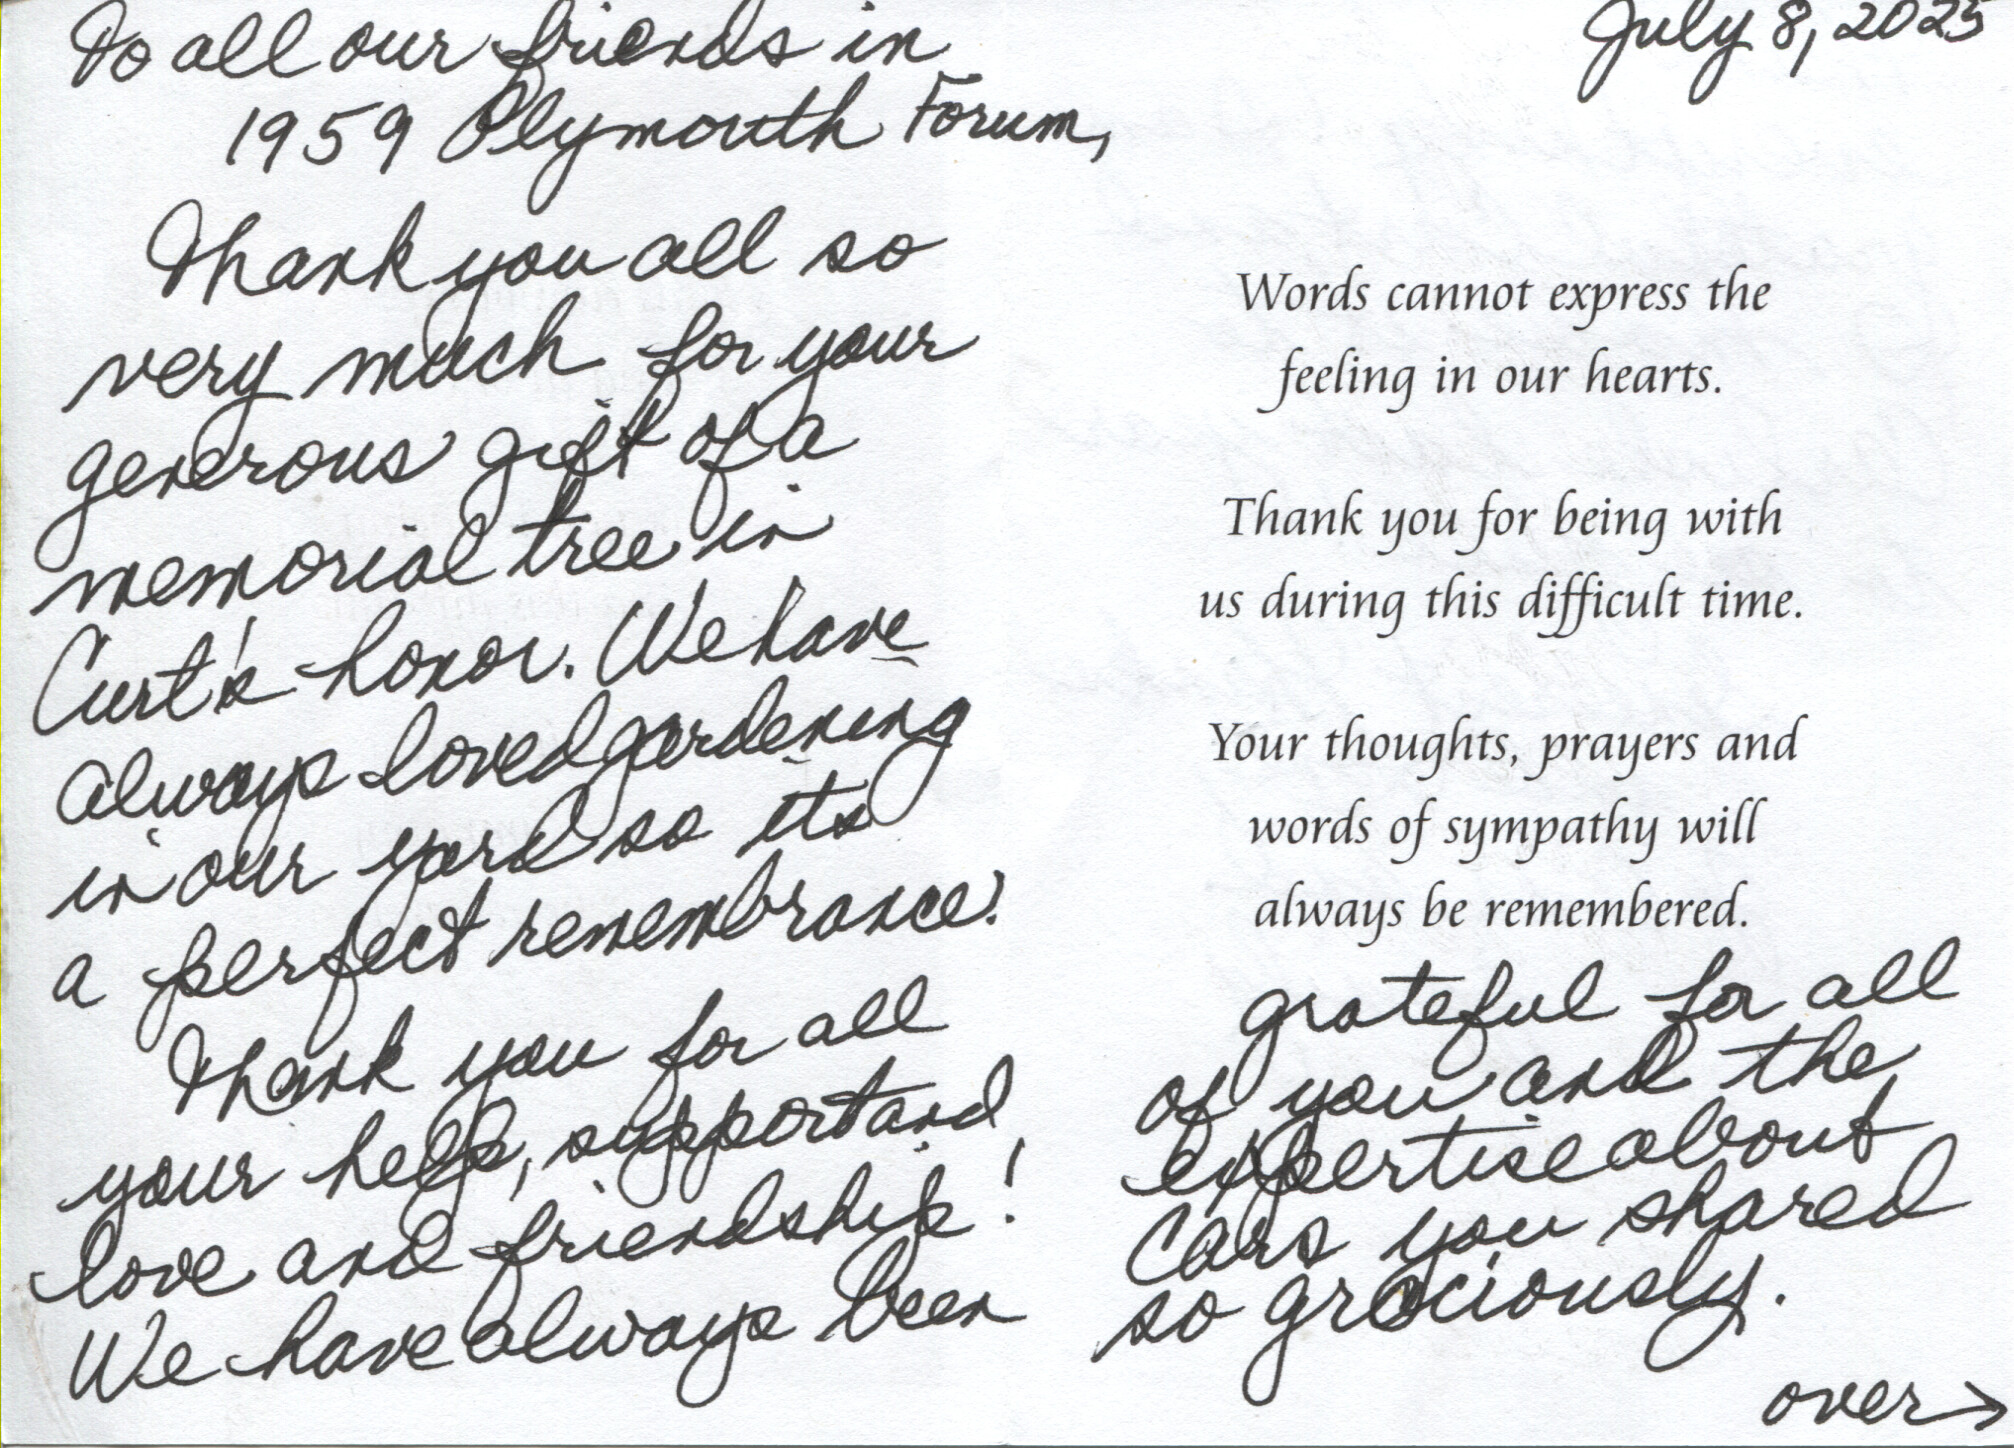 July 8, 2025
To all our friends in
1959 Plymouth Forum,
Thank you all so
very much for your
generous gift of a
memorial tree in
Curt's honor. We have
always loved gardening
in our yard so its
a perfect remembrance!
Thank you for all
your help, support and
love and friendship!
We have always been
Words cannot express the
feeling in our hearts.
Thank you for being with
us during this difficult time.
Your thoughts, prayers and
words of sympathy will
always be remembered.
grateful for all
of you and the
expertise about
Cars you shared
so graciously.
over→